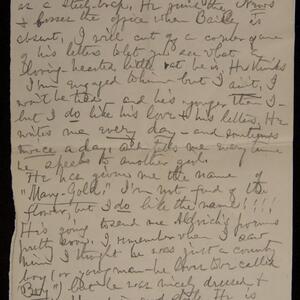 as a steel-trap. He prints the News
& bosses the office when Bailey is
absent, I will cut of a corner
of his letters to let you see what a
loving-hearted little rat he is. He thinks
I'm engaged to him but I ain't, I
won't be tied and he's younger than I–
but I do like his love & his letters. He
writes me every day – and sometimes
twice a day, and tells me every time
he speaks to another girl.
He has given me the name of
"Mary-Gold," I'm not fond of the
flower, but I do like the name!!!!
He's going to send me Aldrich's poems
pretty soon. I remember when I saw
him I thought he was just a country
boy (or young-man – he to be called
Boy") but he was nicely dressed &